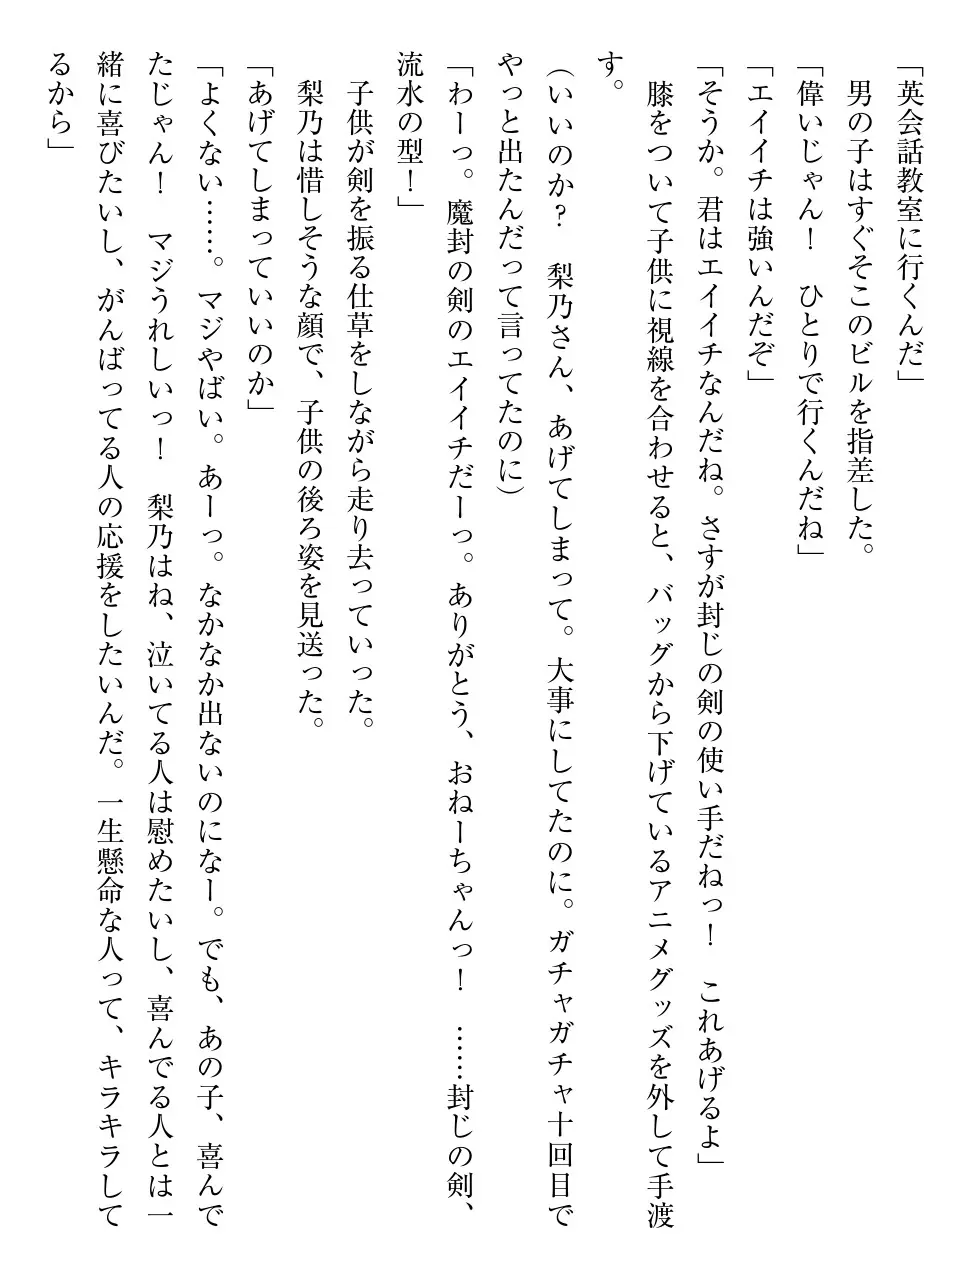 「英会話教室に行くんだ」
　男の子はすぐそこのビルを指差した。
「偉いじゃん！　ひとりで行くんだね」
「エイイチは強いんだぞ」
「そうか。君はエイイチなんだね。さすが封じの剣の使い手だねっ！　これあげるよ」
　膝をついて子供に視線を合わせると、バッグから下げているアニメグッズを外して手渡
す。
（いいのか？　梨乃さん、あげてしまって。大事にしてたのに。ガチャガチャ十回目で
やっと出たんだって言ってたのに）
「わーっ。魔封の剣のエイイチだーっ。ありがとう、おねーちゃんっ！　……封じの剣、
流水の型！」
　子供が剣を振る仕草をしながら走り去っていった。
　梨乃は惜しそうな顔で、子供の後ろ姿を見送った。
「あげてしまっていいのか」
「よくない……。マジやばい。あーっ。なかなか出ないのになー。でも、あの子、喜んで
たじゃん！　マジうれしいっ！　梨乃はね、泣いてる人は慰めたいし、喜んでる人とは一
緒に喜びたいし、がんばってる人の応援をしたいんだ。一生懸命な人って、キラキラして
るから」